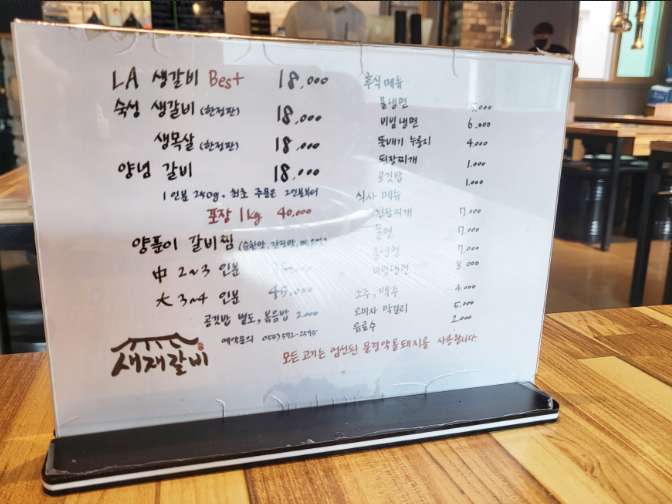 LA 생갈비 Best 18,000
숙성 생갈비 (한정판) 18,000
생목살 (한정판) 18,000
양념 갈비 18,000
1인분 250g. 최초 주문은 2인분부터
포장 1kg 40,000
양푼이 갈비찜
中 2~3 인분
大 3~4 인분
공깃밥 별도, 볶음밥 2,000
새재갈비
예약문의
후식 메뉴
물냉면
비빔냉면 6,000
뚝배기 누룽지 4,000
된장찌개 1,000
공깃밥 1,000
식사 메뉴
된장찌개 7,000
7,000
물냉면 7,000
비빔냉면 8,000
소주, 맥주 4,000
오미자 막걸리 5,000
음료수 2,000
모든 고기는 엄선된 문경약돌돼지를 사용합니다